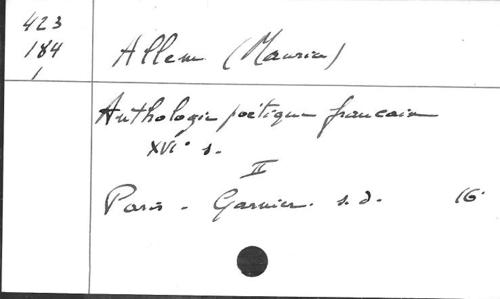 423
184
1
Allem (Maurice)
Anthologie poétique française
XVIᵉ s.
II
Paris - Garnier. s.d. 16°